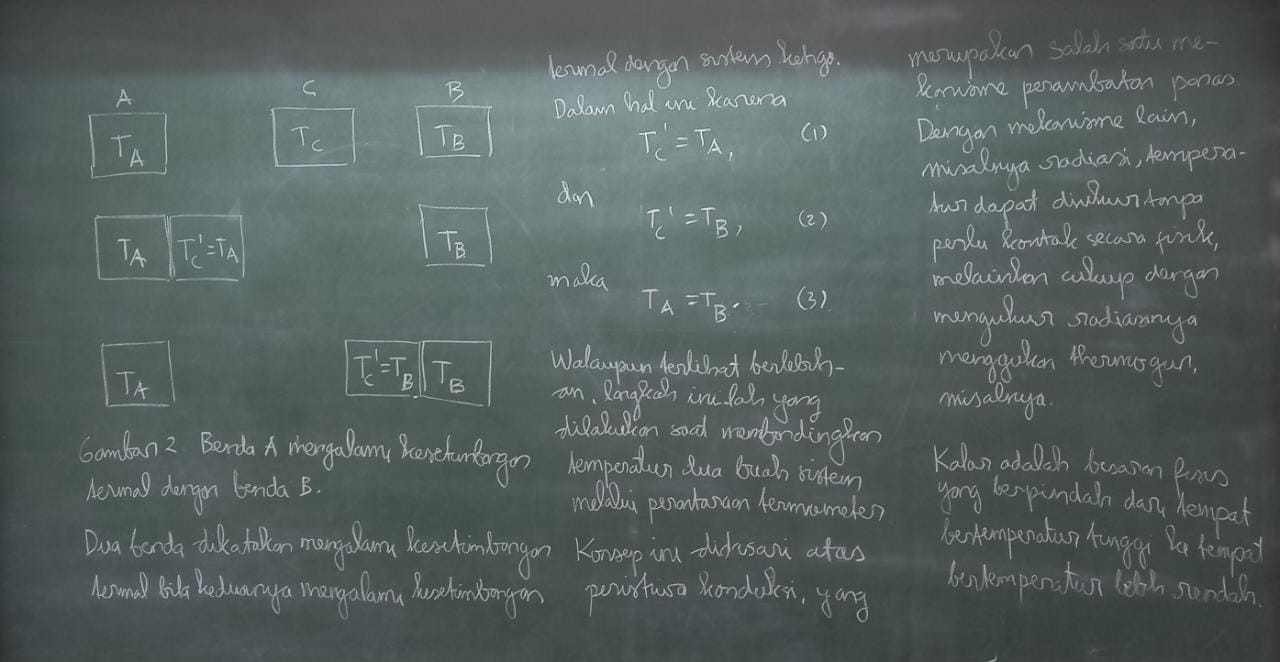 A C B
T_A T_C T_B
T_A T_C'=T_A T_B
T_A T_C'=T_B T_B
Gambar 2 Benda A mengalami kesetimbangan
termal dengan benda B.
Dua benda dikatakan mengalami kesetimbangan
termal bila keduanya mengalami kesetimbangan
termal dengan sistem ketiga.
Dalam hal ini karena
T_C' = T_A, (1)
dan
T_C' = T_B, (2)
maka
T_A = T_B. (3)
Walaupun terlihat berlebih-
an, langkah inilah yang
dilakukan saat membandingkan
temperatur dua buah sistem
melalui perantaraan termometer
Konsep ini didasari atas
peristiwa konduksi, yang
merupakan salah satu me-
kanisme perambatan panas.
Dengan mekanisme lain,
misalnya radiasi, tempera-
tur dapat diukur tanpa
perlu kontak secara fisik,
melainkan cukup dengan
mengukur radiasinya
menggukan thermogun,
misalnya.
Kalor adalah besaran fisis
yang berpindah dari tempat
bertemperatur tinggi ke tempat
bertemperatur lebih rendah.